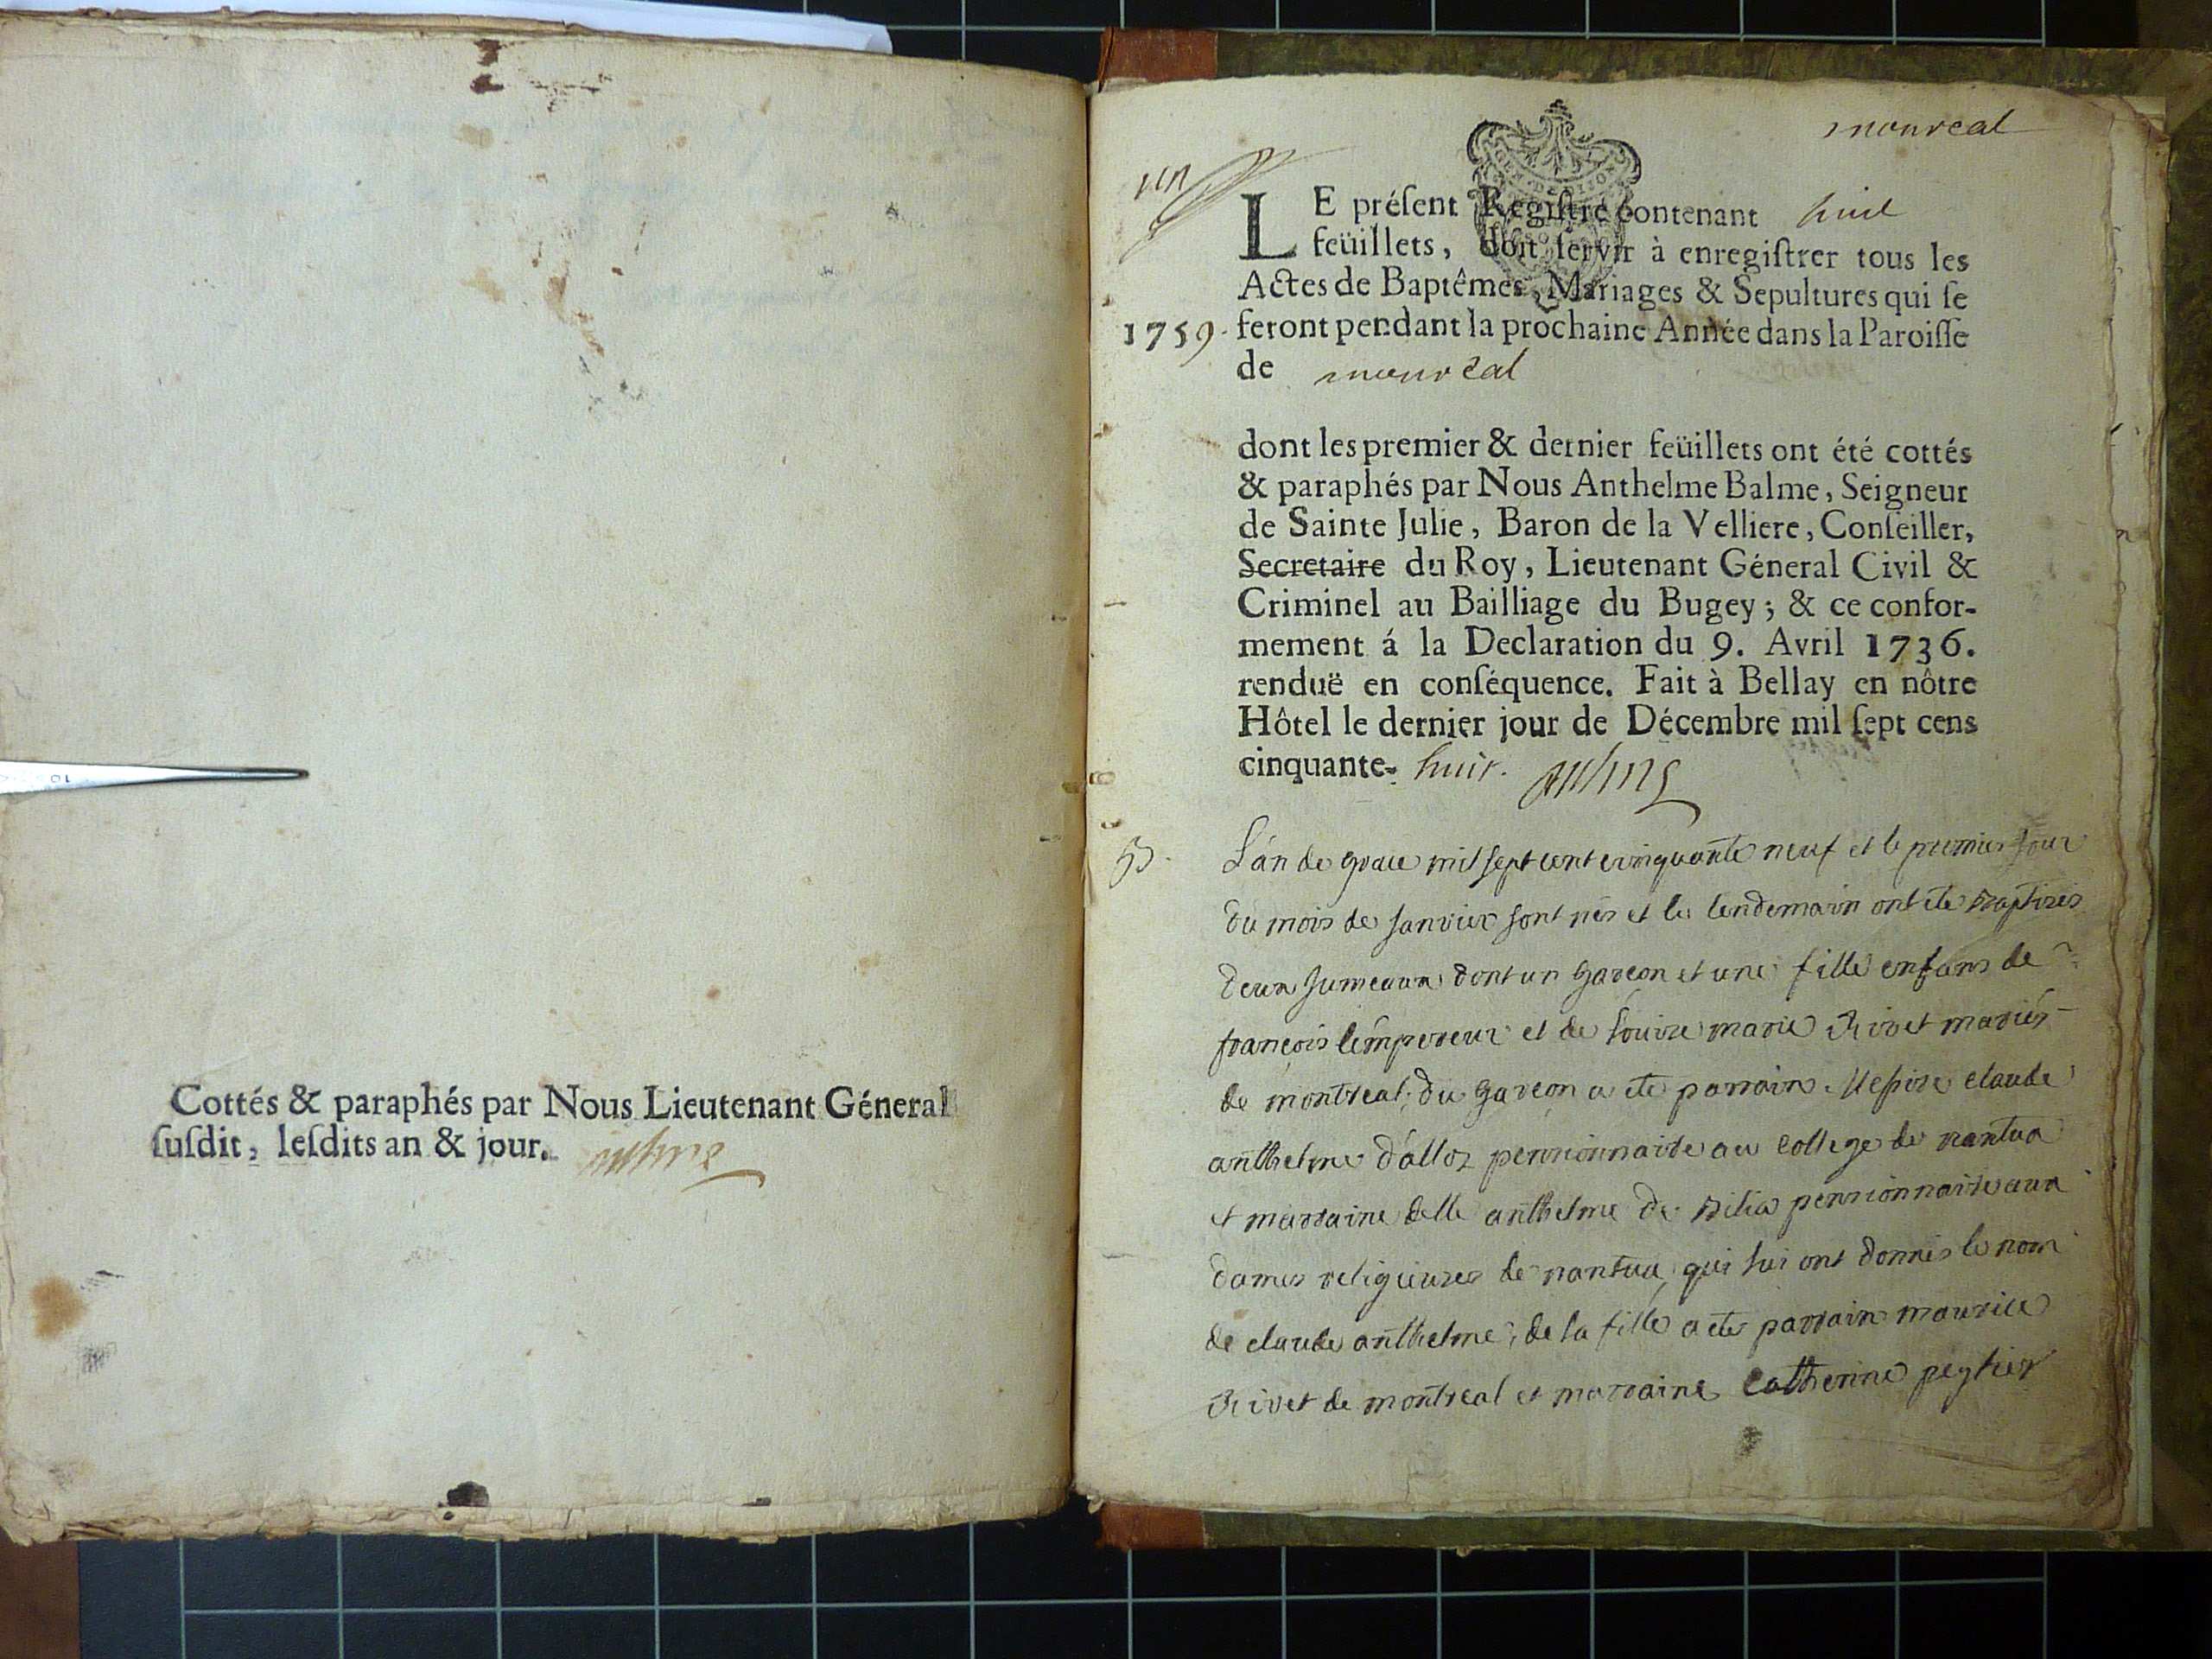 Cottés & paraphés par Nous Lieutenant Géneral
ſuſdit, leſdits an & jour.
monreal
un
LE préſent Regiſtre contenant huit
feüillets, doit ſervir à enregiſtrer tous les
Actes de Baptêmes, Mariages & Sepultures qui ſe
1759. feront pendant la prochaine Année dans la Paroiſſe
de monreal
dont les premier & dernier feüillets ont été cottés
& paraphés par Nous Anthelme Balme, Seigneur
de Sainte Julie, Baron de la Velliere, Conſeiller,
Secretaire du Roy, Lieutenant Géneral Civil &
Criminel au Bailliage du Bugey; & ce confor-
mement á la Declaration du 9. Avril 1736.
renduë en conſéquence. Fait à Bellay en nôtre
Hôtel le dernier jour de Décembre mil ſept cens
cinquante- huit.
L'án de grace mil sept cent cinquante neuf et le premier jour
du mois de janvier sont nés et le lendemain ont ete baptisés
deux jumeaux dont un garcon et une fille enfans de
françois lémpereur et de loüise marie Rivet mariés
de montreal; du garçon a ete parrain Messire claude
anthelme d'alloz pensionnaire au college de nantua
et marraine delle anthelme de pensionnaire aux
dames religieuses de nantua, qui lui ont donnés le nom
de claude anthelme; de la fille a ete parrain maurice
Rivet de montreal et marraine catherine